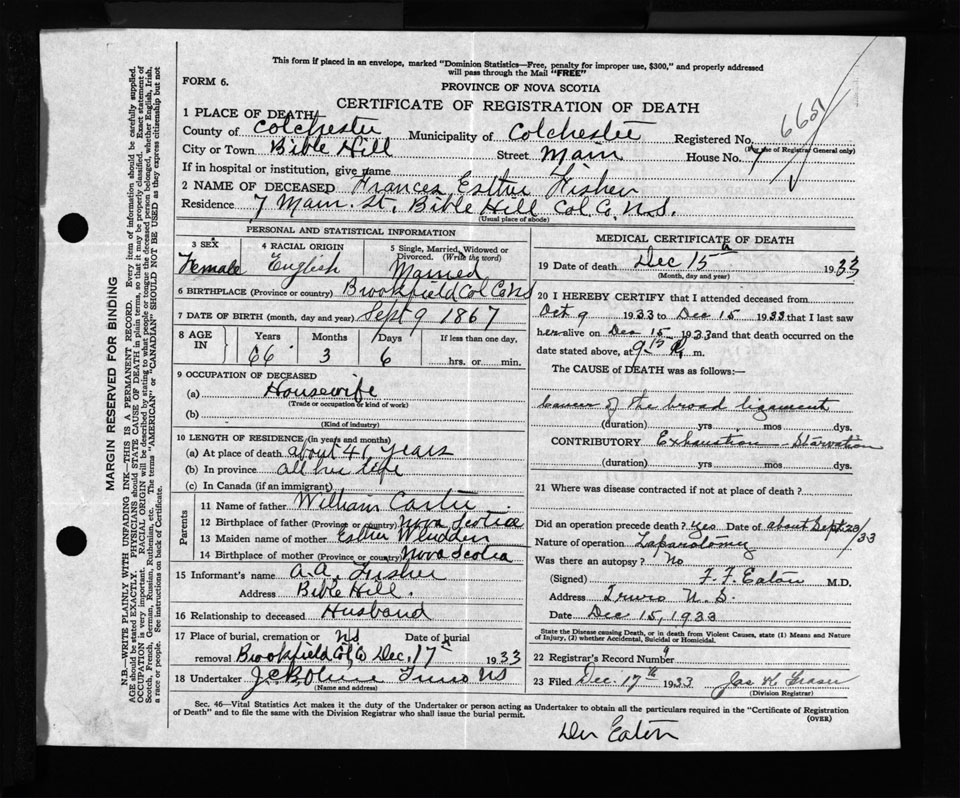 This form if placed in an envelope, marked "Dominion Statistics—Free, penalty for improper use, $300," and properly addressed
will pass through the Mail "FREE"
FORM 6.
PROVINCE OF NOVA SCOTIA
CERTIFICATE OF REGISTRATION OF DEATH
1 PLACE OF DEATH
County of Colchester Municipality of Colchester Registered No.
(For use of Registrar General only)
City or Town Bible Hill Street Main House No. 7
If in hospital or institution, give name
2 NAME OF DECEASED Frances Esther Fisher
Residence 7 Main St, Bible Hill Col Co, N.S.
(Usual place of abode)
PERSONAL AND STATISTICAL INFORMATION
3 SEX 4 RACIAL ORIGIN 5 Single, Married, Widowed or
Divorced. (Write the word)
Female English Married
6 BIRTHPLACE (Province or country) Brookfield Col Co NS
7 DATE OF BIRTH (month, day and year) Sept 9 1867
8 AGE IN Years Months Days If less than one day,
66 3 6 hrs. or min.
9 OCCUPATION OF DECEASED
(a) Housewife
(Trade or occupation or kind of work)
(b)
(Kind of industry)
10 LENGTH OF RESIDENCE (in years and months)
(a) At place of death about 41 years
(b) In province all her life
(c) In Canada (if an immigrant)
Parents
11 Name of father William Carter
12 Birthplace of father (Province or country) Nova Scotia
13 Maiden name of mother Esther
14 Birthplace of mother (Province or country) Nova Scotia
15 Informant's name A.A. Fisher
Address Bible Hill.
16 Relationship to deceased Husband
17 Place of burial, cremation or NS Date of burial
removal Brookfield Col Co Dec, 17 1933
18 Undertaker Truro NS
(Name and address)
MEDICAL CERTIFICATE OF DEATH
19 Date of death Dec 15th 1933
(Month, day and year)
20 I HEREBY CERTIFY that I attended deceased from
Oct 9 1933 to Dec 15 1933 that I last saw
her alive on Dec 15 1933 and that death occurred on the
date stated above, at 9 15 m.
The CAUSE of DEATH was as follows:—
Cancer of the broad ligament
(duration) yrs mos dys.
CONTRIBUTORY Exhaustion Starvation
(duration) yrs. mos. dys.
21 Where was disease contracted if not at place of death?
Did an operation precede death? yes Date of about Sept 23/33
Nature of operation Laparotomy
Was there an autopsy? No
(Signed) F. F. Eaton M.D.
Address Truro N.S.
Date Dec 15, 1933
State the Disease causing Death, or in death from Violent Causes, state (1) Means and Nature
of Injury, (2) whether Accidental, Suicidal or Homicidal.
22 Registrar's Record Number 9
23 Filed Dec. 17th 1933 Jas K Fraser
(Division Registrar)
Sec. 46—Vital Statistics Act makes it the duty of the Undertaker or person acting as Undertaker to obtain all the particulars required in the "Certificate of Registration
of Death" and to file the same with the Division Registrar who shall issue the burial permit.
(OVER)
Eaton
MARGIN RESERVED FOR BINDING
N.B.—WRITE PLAINLY, WITH UNFADING INK—THIS IS A PERMANENT RECORD. Every item of information should be carefully supplied.
AGE should be stated EXACTLY. PHYSICIANS should STATE CAUSE OF DEATH in plain terms, so that it may be properly classified. Exact statement of
OCCUPATION is very important. RACIAL ORIGIN will be described by stating to what people or tongue the deceased person belonged, whether English, Irish,
Scotch, French, German, Russian, Ruthenian, etc. The terms "AMERICAN" or "CANADIAN" SHOULD NOT BE USED as they express citizenship but not
a race or people. See instructions on back of Certificate.